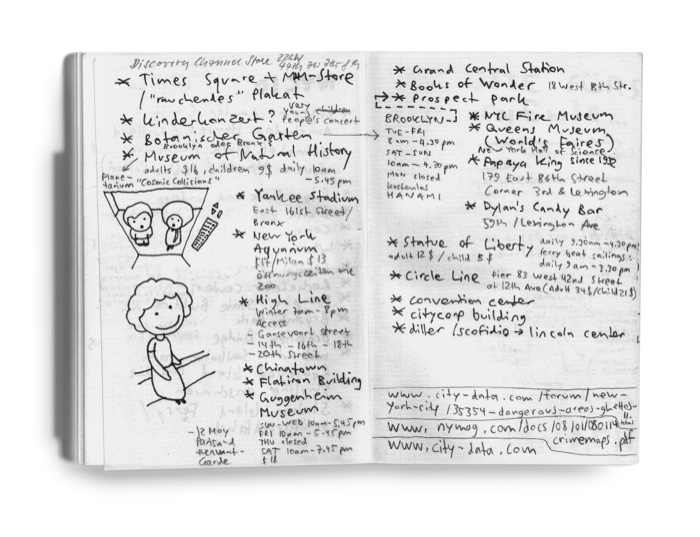 Discovery Channel Store
* Times Square + M+M-Store
/"rauchendes" Plakat
* Kinderkonzert? very young children
People's concert
* Botanischer Garten
Brooklyn oder Bronx?
* Museum of Natural History
adults $16, children 9$ daily 10am
-5.45pm
Plane-
tarium "Cosmic Collisions"
* Yankee Stadium
East 161st Street/
Bronx
* New York
Aquarium
$13
öffnungszeiten wie
zoo
* High Line
Winter 7am-8pm
Access
- Gansevoort Street
- 14th - 16th - 18th
- 20th Street
* Chinatown
* Flatiron Building
* Guggenheim
Museum
SUN-WED 10am-5.45pm
FRI 10am-5.45pm
THU closed
SAT 10am-7.45pm
$18
-12 May
Garde
* Grand Central Station
* Books of Wonder 18 West 18th Str.
* Prospect park
BROOKLYN
TUE-FRI
8am-4.30pm
SAT-SUN
10am-4.30pm
MON closed
kostenlos
HANAMI
* NYC Fire Museum
* Queens Museum
(World's Faires)
New York Hall of Science
* Papaya King since 1932
179 East 86th Street
Corner 3rd & Lexington
* Dylan's Candy Bar
59th / Lexington Ave
* Statue of Liberty daily 9.30am-4.30pm
adult 12$ / child 5$ ferry boat sailings:
daily 9am-3.30pm
* Circle Line Pier 83 West 42nd Street
at 12th Ave (Adult 34$/Child 21$)
* convention center
* citycorp building
* diller /scofidio → lincoln center
www.city-data.com/forum/new-
york-city/35354-dangerous-areas-ghettos-
11.html
www.nymag.com/docs/08/01/080114
crimemaps.pdf
www.city-data.com